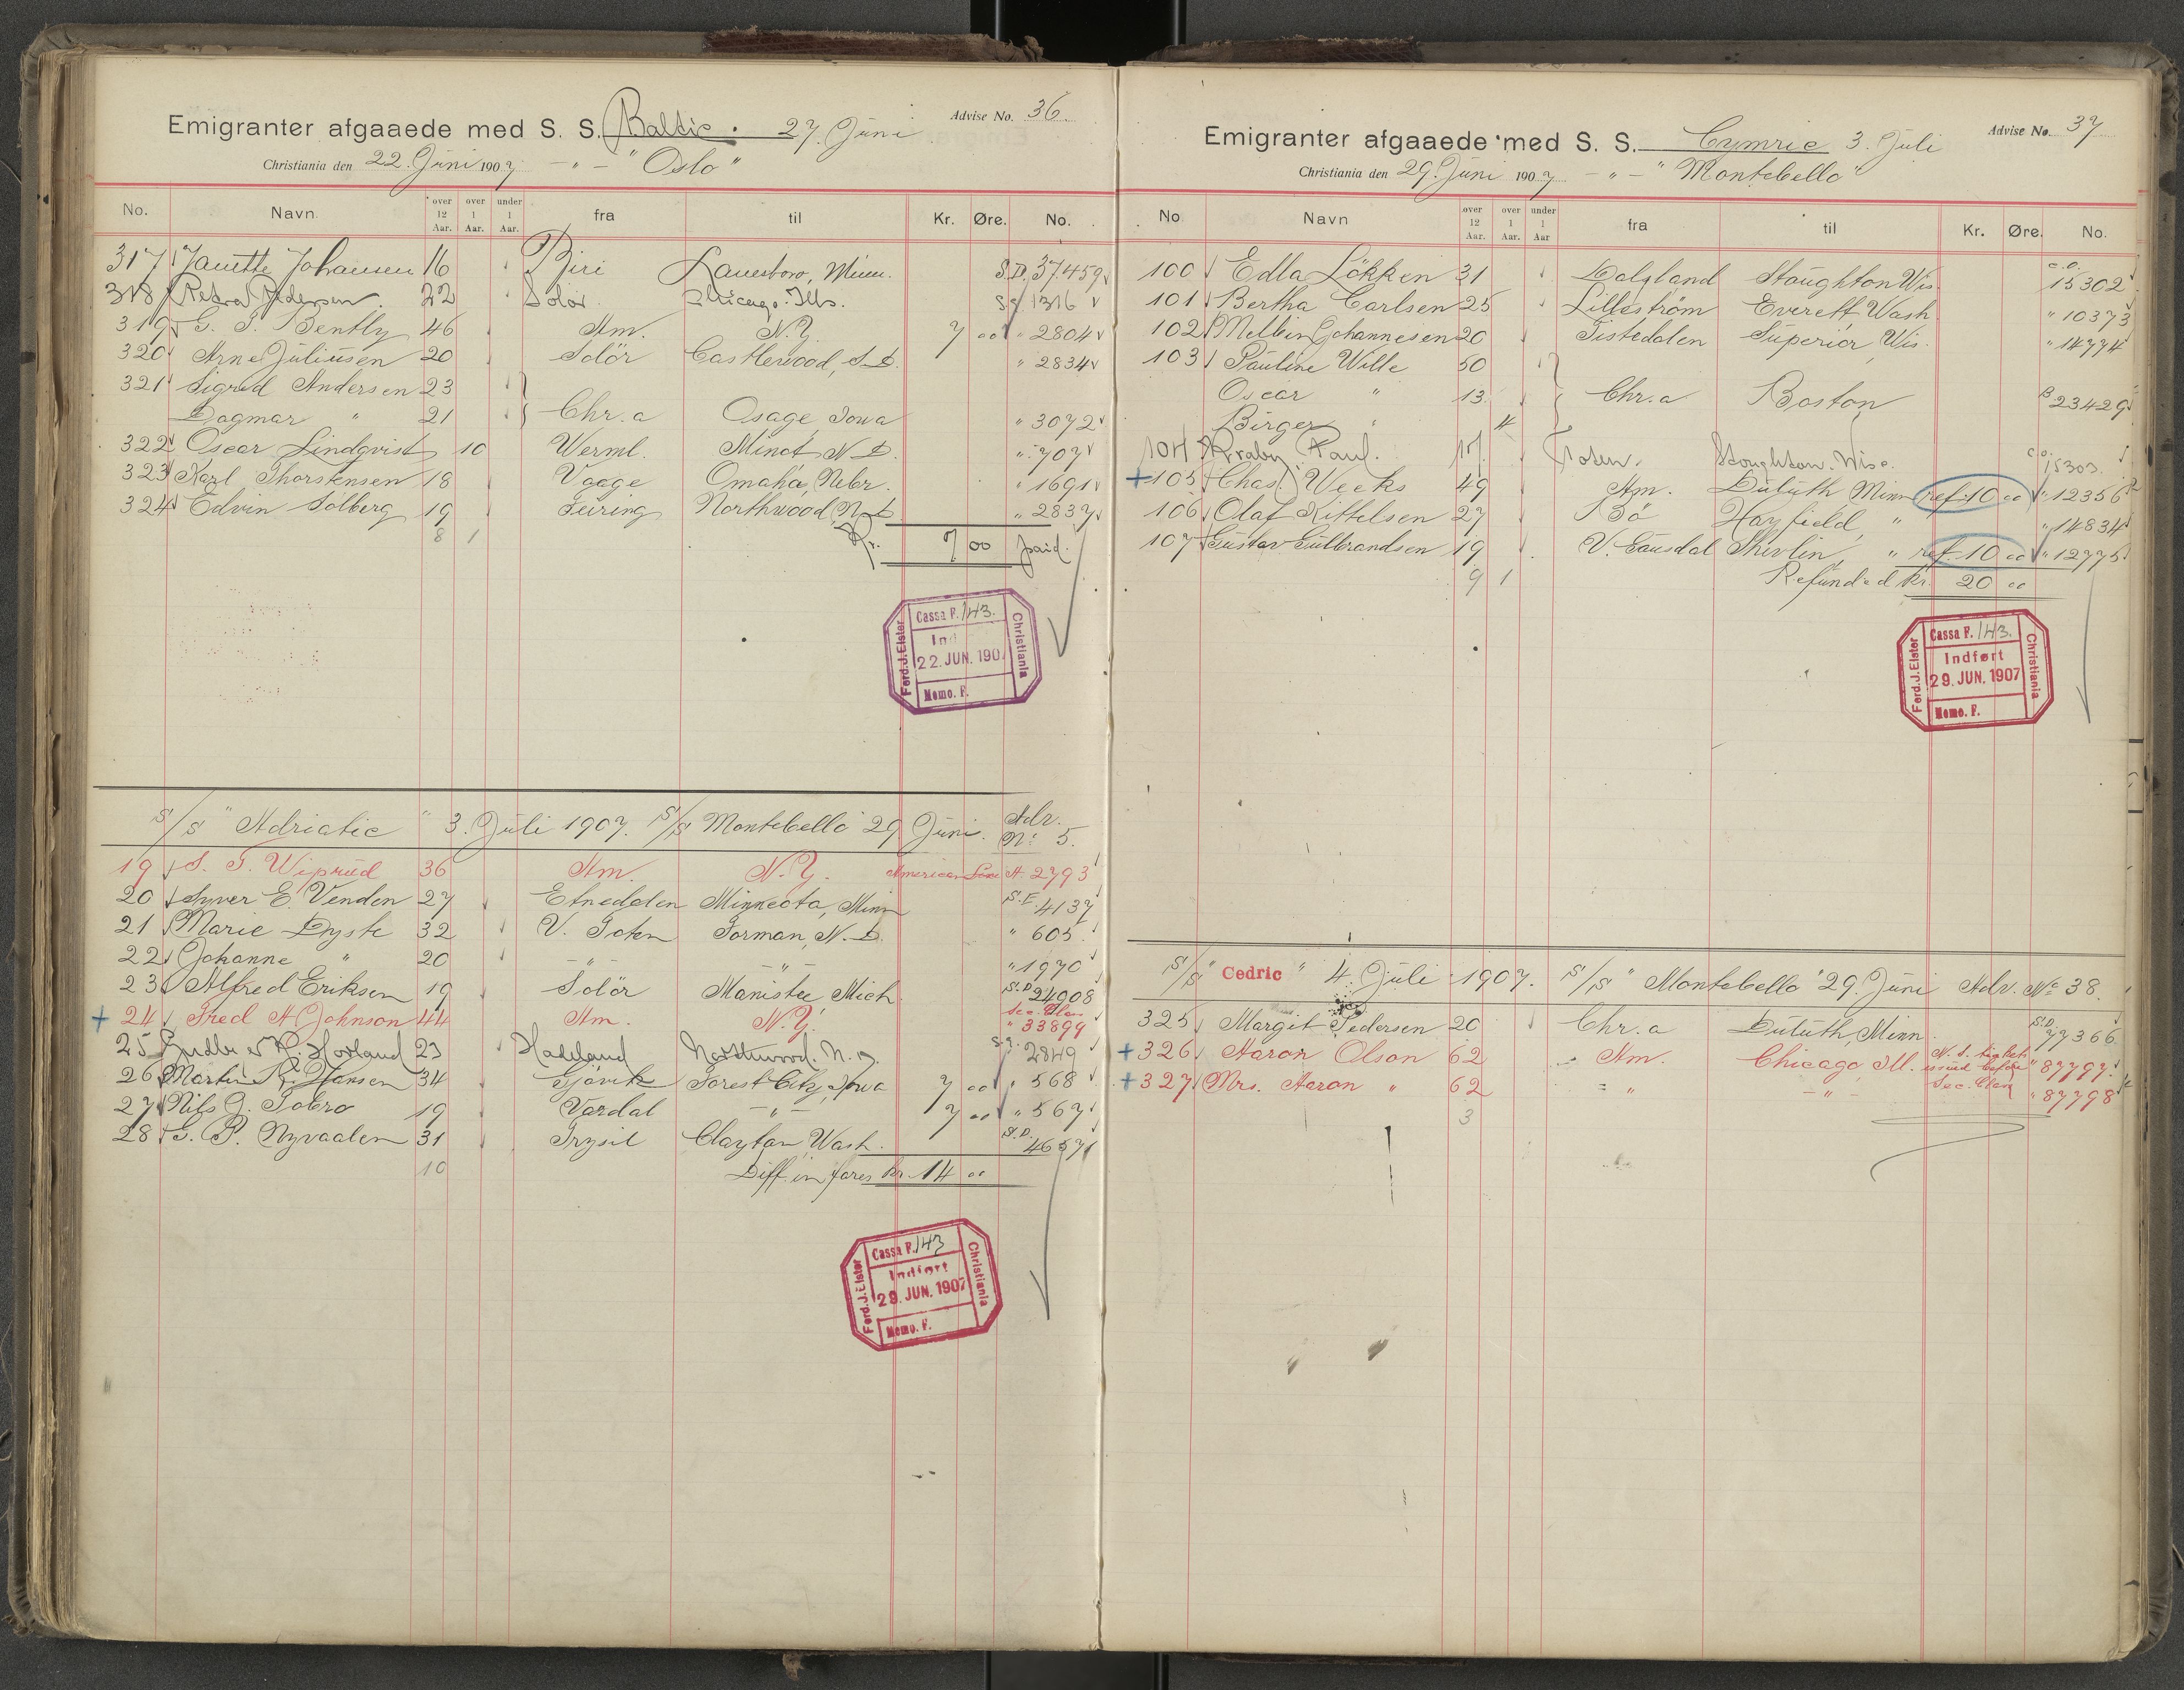 Emigranter afgaaede med S. S. Baltic. 27. Juni Advise No. 36.
Christiania den 22. Juni 1907 - " - "Oslo"
No. Navn. over 12 Aar. over 1 Aar. under 1 Aar. fra til Kr. Øre. No.
317 Janette Johansen 16 Biri Lanesboro, Minn. S.D. 37459
318 Petra Pedersen. 22 Solör. Chicago. Ills. 1316
319 G. T. Bently 46 Am. N.Y. 7 00 " 2804
320 Arne Juliusen 20 Solör Castlewood, S.D. " 2834
321 Sigrid Andersen 23
Dagmar " 21 Chr.a Osage, Iowa " 3072
322 Oscar Lindqvist 10 Werml. Minot N.D. " 707
323 Karl Thorstensen 18 Vaage Omaha, Nebr. " 1691
324 Edvin Solberg 19 Feiring Northwood, N.D. " 2837
8 1 Kr. 7 00 paid.
Ferd. J. Elster Cassa F. 143. Ind 22. JUN. 190 Memo. F. Christiania
S/S "Adriatic" 3. Juli 1907. S/S Montebello 29 Juni. Adv. No 5.
19 S. T. Wiprud 36 Am. N.Y. American Line A 2793
20 Syver E. Venden 27 Etnedalen Minneota, Minn S.E. 4137
21 Marie Dyste 32 V. Toten Forman, N.D. " 605
22 Johanne " 20 - " - - " - " 1970
23 Alfred Eriksen 19 Solör Manistee Mich. S.D. 24908
24 Fred A Johnson 44 Am. N.Y. Sec. Clas " 33899
25 Hovland 23 Hadeland Northwood. N.D. 2849
26 Martin R. Hansen 34 Gjövik Forest City, Iowa 7 00 " 568
27 Nils J. Sobro 19 Vardal - " - 7 00 " 567
28 G. P. Nyvaalen 31 Trysil Clayton, Wash. S.D. 46571
10 Diff. in fares Kr. 14 00
Ferd. J. Elster Cassa F. 143 Indført 29. JUN. 1907 Memo. F. Christiania
Emigranter afgaaede med S. S. Cymric 3. Juli Advise No. 37
Christiania den 29. Juni 1907 - " - "Montebello"
No Navn over 12 Aar. over 1 Aar. under 1 Aar fra til Kr. Øre. No.
100 Edla Lökken 31 Dalsland Stoughton Wis. C.O. 15302
101 Bertha Carlsen 25 Lilleström Everett Wash " 10373
102 Melbin Johannesen 20 Tistedalen Superior, Wis. " 14774
103 Pauline Wille 50
Oscar " 13 Chr.a Boston B 23429
Birger " 4
104 Kraby, Paul. 17. Toten. Stoughton. Wisc. C.O. 15303.
+ 105 Chas. Weeks 49 Am. Duluth Minn ref. 10 00 " 12356
106 Olaf Kittelsen 27 Bö Hayfield, " " 14834
107 Gustav Gulbrandsen 19 V. Gausdal Shevlin, " ref. 10 00 " 12775
9 1 Refunded Kr. 20 00
Ferd. J. Elster Cassa F. 143. Indført 29. JUN. 1907 Memo. F. Christiania
S/S "Cedric" 4. Juli 1907. S/S "Montebello" 29. Juni Adv. No 38.
325 Margit Pedersen 20 Chr.a Duluth, Minn. S.D. 77366
+ 326 Aaron Olson 62 Am. Chicago, Ill. N. S. tickets issued before " 87797.
+ 327 Mrs. Aaron " 62 " - " - Sec. Clas " 87798
3